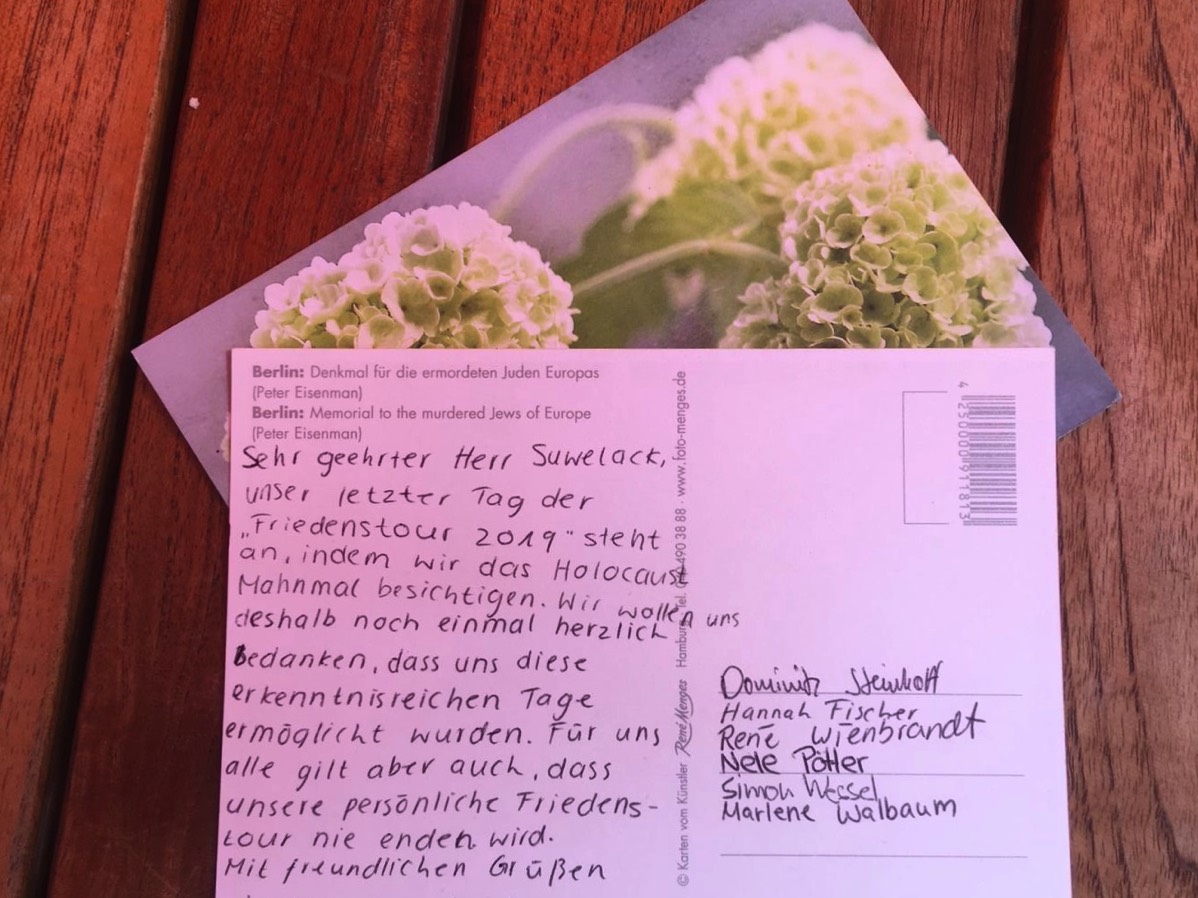 Berlin: Denkmal für die ermordeten Juden Europas
(Peter Eisenman)
Berlin: Memorial to the murdered Jews of Europe
(Peter Eisenman)
Sehr geehrter Herr Suwelack,
unser letzter Tag der
„Friedenstour 2019" steht
an, indem wir das Holocaust
Mahnmal besichtigen. Wir wollen uns
deshalb noch einmal herzlich
bedanken, dass uns diese
erkenntnisreichen Tage
ermöglicht wurden. Für uns
alle gilt aber auch, dass
unsere persönliche Friedens-
tour nie enden wird.
Mit freundlichen Grüßen
© Karten vom Künstler René Menges Hamburg Tel. 490 38 88 · www.foto-menges.de
4 250000 911813
Dominik Steinhoff
Hannah Fischer
René Wienbrandt
Nele Pötter
Simon Wessel
Marlene Walbaum